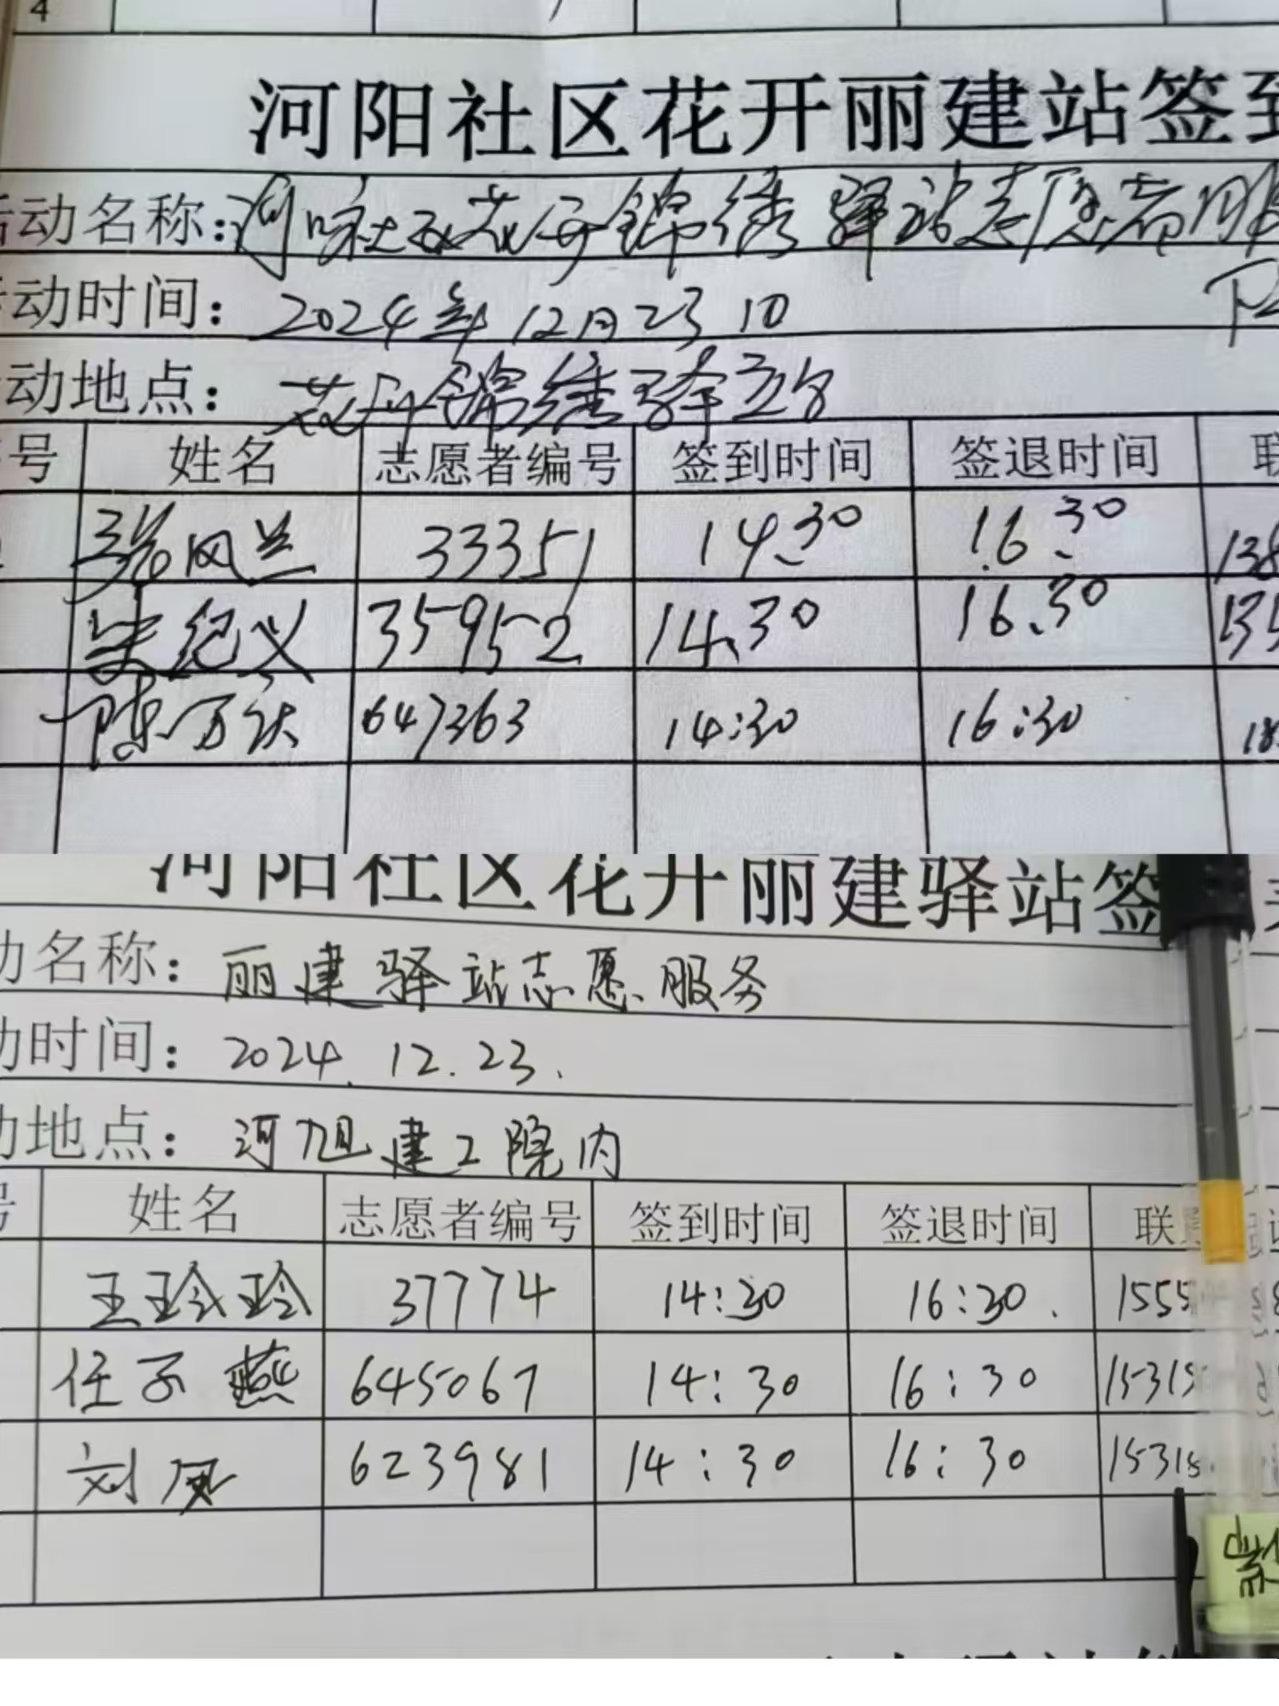 4
河阳社区花开丽建站签到
活动名称:河阳社区花开锦绣驿站志愿者服
活动时间: 2024年12月23日 下午
活动地点: 花开锦绣驿站
号 姓名 志愿者编号 签到时间 签退时间 联
张风兰 33351 14.30 16.30 138
朱纪义 35952 14.30 16.30 135
陈 647363 14:30 16:30 18
河阳社区花开丽建驿站签
动名称: 丽建驿站志愿服务
动时间: 2024.12.23.
动地点: 河旭建工院内
号 姓名 志愿者编号 签到时间 签退时间 联
王玲玲 37774 14:30 16:30. 1555
任子燕 645067 14:30 16:30 15315
刘凤 623981 14:30 16:30 15318